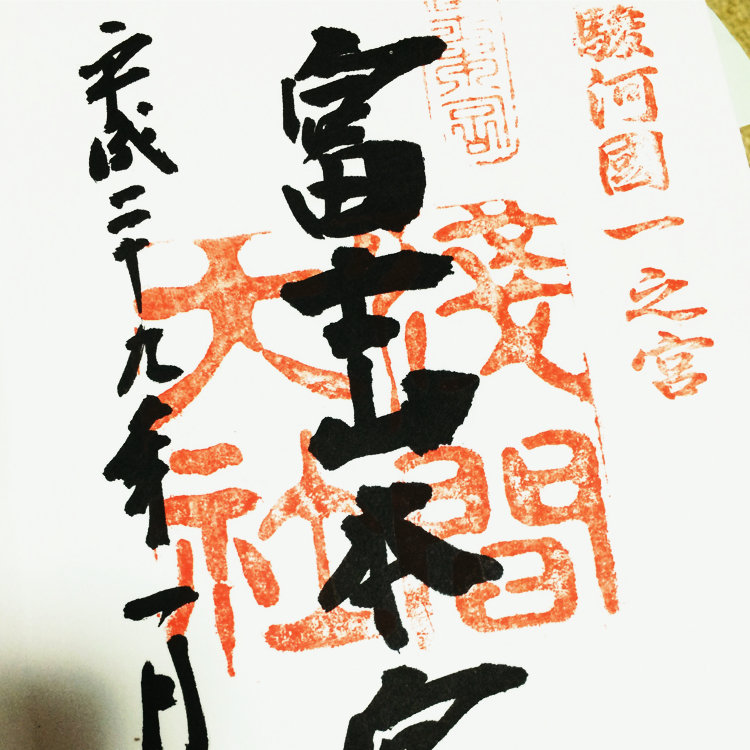 駿河國一之宮
富士山本宮
淺間大社
平成二十九年一月